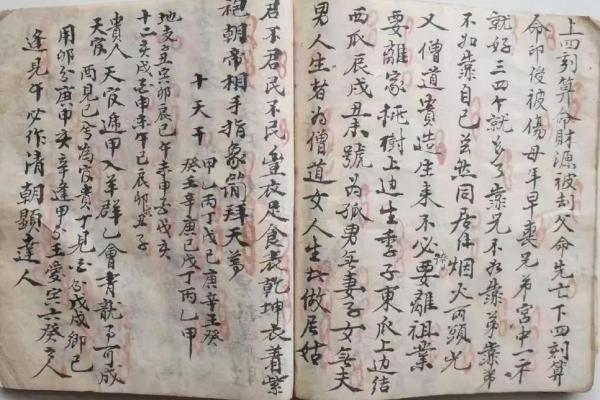 上四刻算命財源被刦父命先亡下四刻算
命卯後被傷母年早喪兄弟宮中一不
就好三四个就多了靠兄不如靠弟靠弟
不如靠自己並然同居住烟火兩頭光
又僧道貴造生来不必要離祖業
要離家桃樹上边生李子東瓜上边结
西瓜辰戌丑未號为孤男無妻子女無夫
男人生者为僧道女人生此做居姑
君不君民不民豐衣足食表乾坤衣著紫
袍朝帝相手指象簡拜天尊
十天干
甲乙丙丁戊己庚辛壬癸
癸壬辛庚己戊丁丙乙甲
丑寅卯辰巳午未申
十二亥戌酉申未午巳辰卯丑子
貴人天官遁甲入羊群乙會青龍可成
天官丙見巳兮為官貴丁見戊戌卿己
用卯庚申亥辛逢甲壬愛六癸人
逢見午必作清朝顯達人